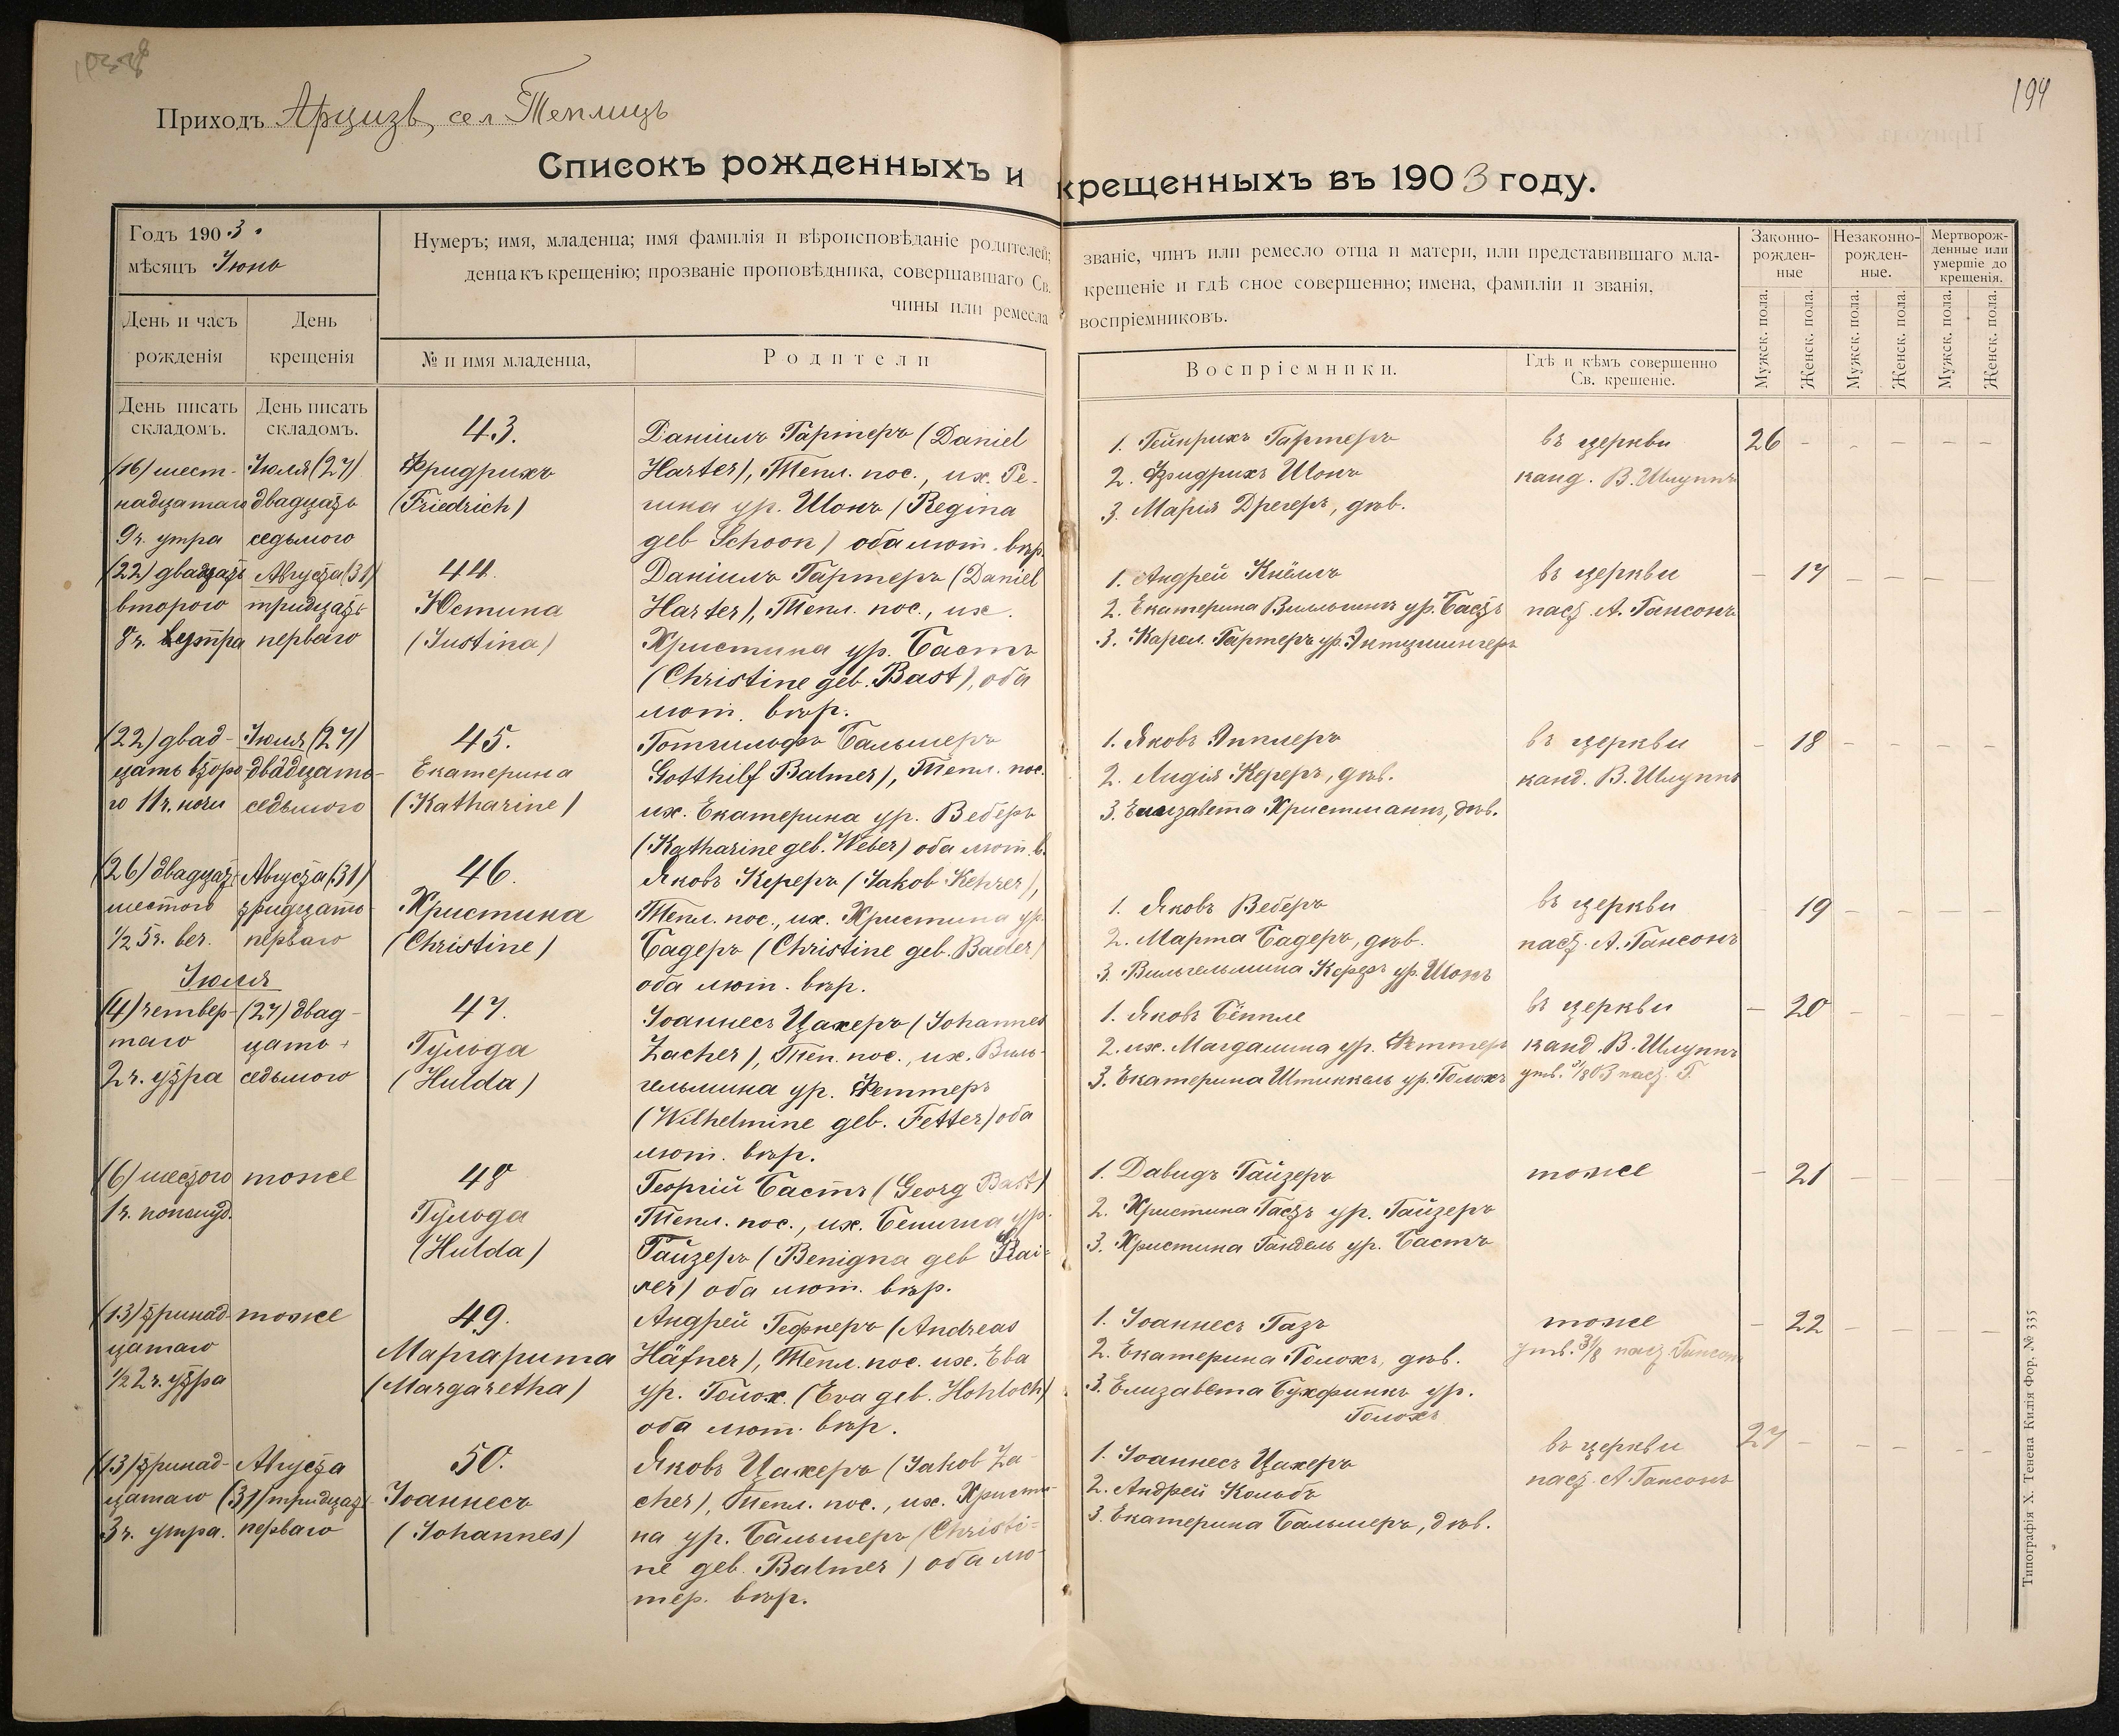 194
Приходъ Арцизъ, сел Теплицъ
Списокъ рожденныхъ и крещенныхъ въ 1903 году.
Годъ 1903.
мѣсяцъ Іюнь
День и часъ рожденія
День крещенія
Нумеръ; имя, младенца; имя фамилія и вѣроисповѣданіе родителей; званіе, чинъ или ремесло отца и матери, или представившаго мла-
денца къ крещенію; прозваніе проповѣдника, совершавшаго Св. крещеніе и гдѣ оное совершенно; имена, фамиліи и званія,
чины или ремесла воспріемниковъ.
№ и имя младенца,
Родители
Воспріемники.
Гдѣ и кѣмъ совершенно
Св. крещеніе.
Законно-
рожден-
ные
Незаконно-
рожден-
ные.
Мертворож-
денные или
умершіе до
крещенія.
Мужск. пола.
Женск. пола.
Мужск. пола.
Женск. пола.
Мужск. пола.
Женск. пола.
День писать
складомъ.
День писать
складомъ.
(16) шест-
надцатаго
9 ч. утра
Іюля (27)
двадцать
седьмого
43.
Фридрихъ
(Friedrich)
Даніилъ Гартеръ (Daniel
Harter), Тепл. пос., их. Ре-
гина ур. Шонъ (Regina
geb Schoon) оба лют. вѣр.
1. Гейнрихъ Гартеръ
2. Фридрихъ Шонъ
3. Марія Дрегеръ, дѣв.
въ церкви
канд. В. Шлуппъ
26 - - - - -
(22) двадцать
второго
8 ч. утра
Августа (31)
тридцать
перваго
44.
Юстина
(Justina)
Даніилъ Гартеръ (Daniel
Harter), Тепл. пос., их.
Христина ур. Бастъ
(Christine geb. Bast), оба
лют. вѣр.
1. Андрей Кнёллъ
2. Екатерина ур. Бастъ
3. Карол. Гартеръ ур.
въ церкви
паст. А. Гансонъ
- 17 - - -
(22) двад-
цать второ-
го 11 ч. ночи
Іюля (27)
двадцать-
седьмого
45.
Екатерина
(Katharine)
Готгильфъ Бальмеръ
Gotthilf Balmer), Тепл. пос.
их. Екатерина ур. Веберъ
(Katharine geb. Weber) оба лют. в.
1. Яковъ Эпплеръ
2. Лидія Кереръ, дѣв.
3. Елизавета Христманнъ, дѣв.
въ церкви
канд. В. Шлуппъ
- 18 - - - -
(26) двадцать
шестого
1/2 5 ч. веч.
Августа (31)
тридцать-
перваго
46.
Христина
(Christine)
Яковъ Кереръ (Jakob Kehrer),
Тепл. пос., их. Христина ур.
Бадеръ (Christine geb. Bader)
оба лют. вѣр.
1. Яковъ Веберъ
2. Марта Бадеръ, дѣв.
3. Вильгельмина Кереръ ур. Шонъ
въ церкви
паст. А. Гансонъ
19 - - - -
Іюля
(4) четвер-
таго
2 ч. утра
(27) двад-
цать
седьмого
47.
Гульда
(Hulda)
Іоаннесъ Цахеръ (Johannes
Zacher), Теп. пос., их. Виль-
гельмина ур. Феттеръ
(Wilhelmine geb. Fetter) оба
лют. вѣр.
1. Яковъ Бёппле
2. их. Магдалина ур. Феттеръ
3. Екатерина Штиккель ур. Голохъ
въ церкви
канд. В. Шлуппъ
- 20 - - - -
(6) шестого
1 ч. пополуд.
тоже
48
Гульда
(Hulda)
Георгій Бастъ (Georg Bast)
Тепл. пос., их. Бенигна ур.
Гайзеръ (Benigna geb Kai-
ser) оба лют. вѣр.
1. Давидъ Гайзеръ
2. Христина Гастъ ур. Гайзеръ
3. Христина Гандель ур. Бастъ
тоже
- 21 - - - -
(13) тринад-
цатаго
1/2 2 ч. утра
тоже
49.
Маргарита
(Margaretha)
Андрей Гефнеръ (Andreas
Häfner), Тепл. пос. их. Ева
ур. Голох. (Eva geb. Hohloch)
оба лют. вѣр.
1. Іоаннесъ Газъ
2. Екатерина Голохъ, дѣв.
3. Елизавета Бухфинкъ ур.
Голохъ
тоже
утв. 31/8 паст. Гансонъ
- 22 - - - -
(13) тринад-
цатаго
3 ч. утра.
Августа
(31) тридцать
перваго
50.
Іоаннесъ
(Johannes)
Яковъ Цахеръ (Jakob Za-
cher), Тепл. пос., их. Христи-
на ур. Бальмеръ (Christi-
ne geb. Balmer) оба лю-
тер. вѣр.
1. Іоаннесъ Цахеръ
2. Андрей Кольбъ
3. Екатерина Бальмеръ, дѣв.
въ церкви
паст. А. Гансонъ
27 - - - - -
Типографія Х. Тенена Килія Фор. № 335